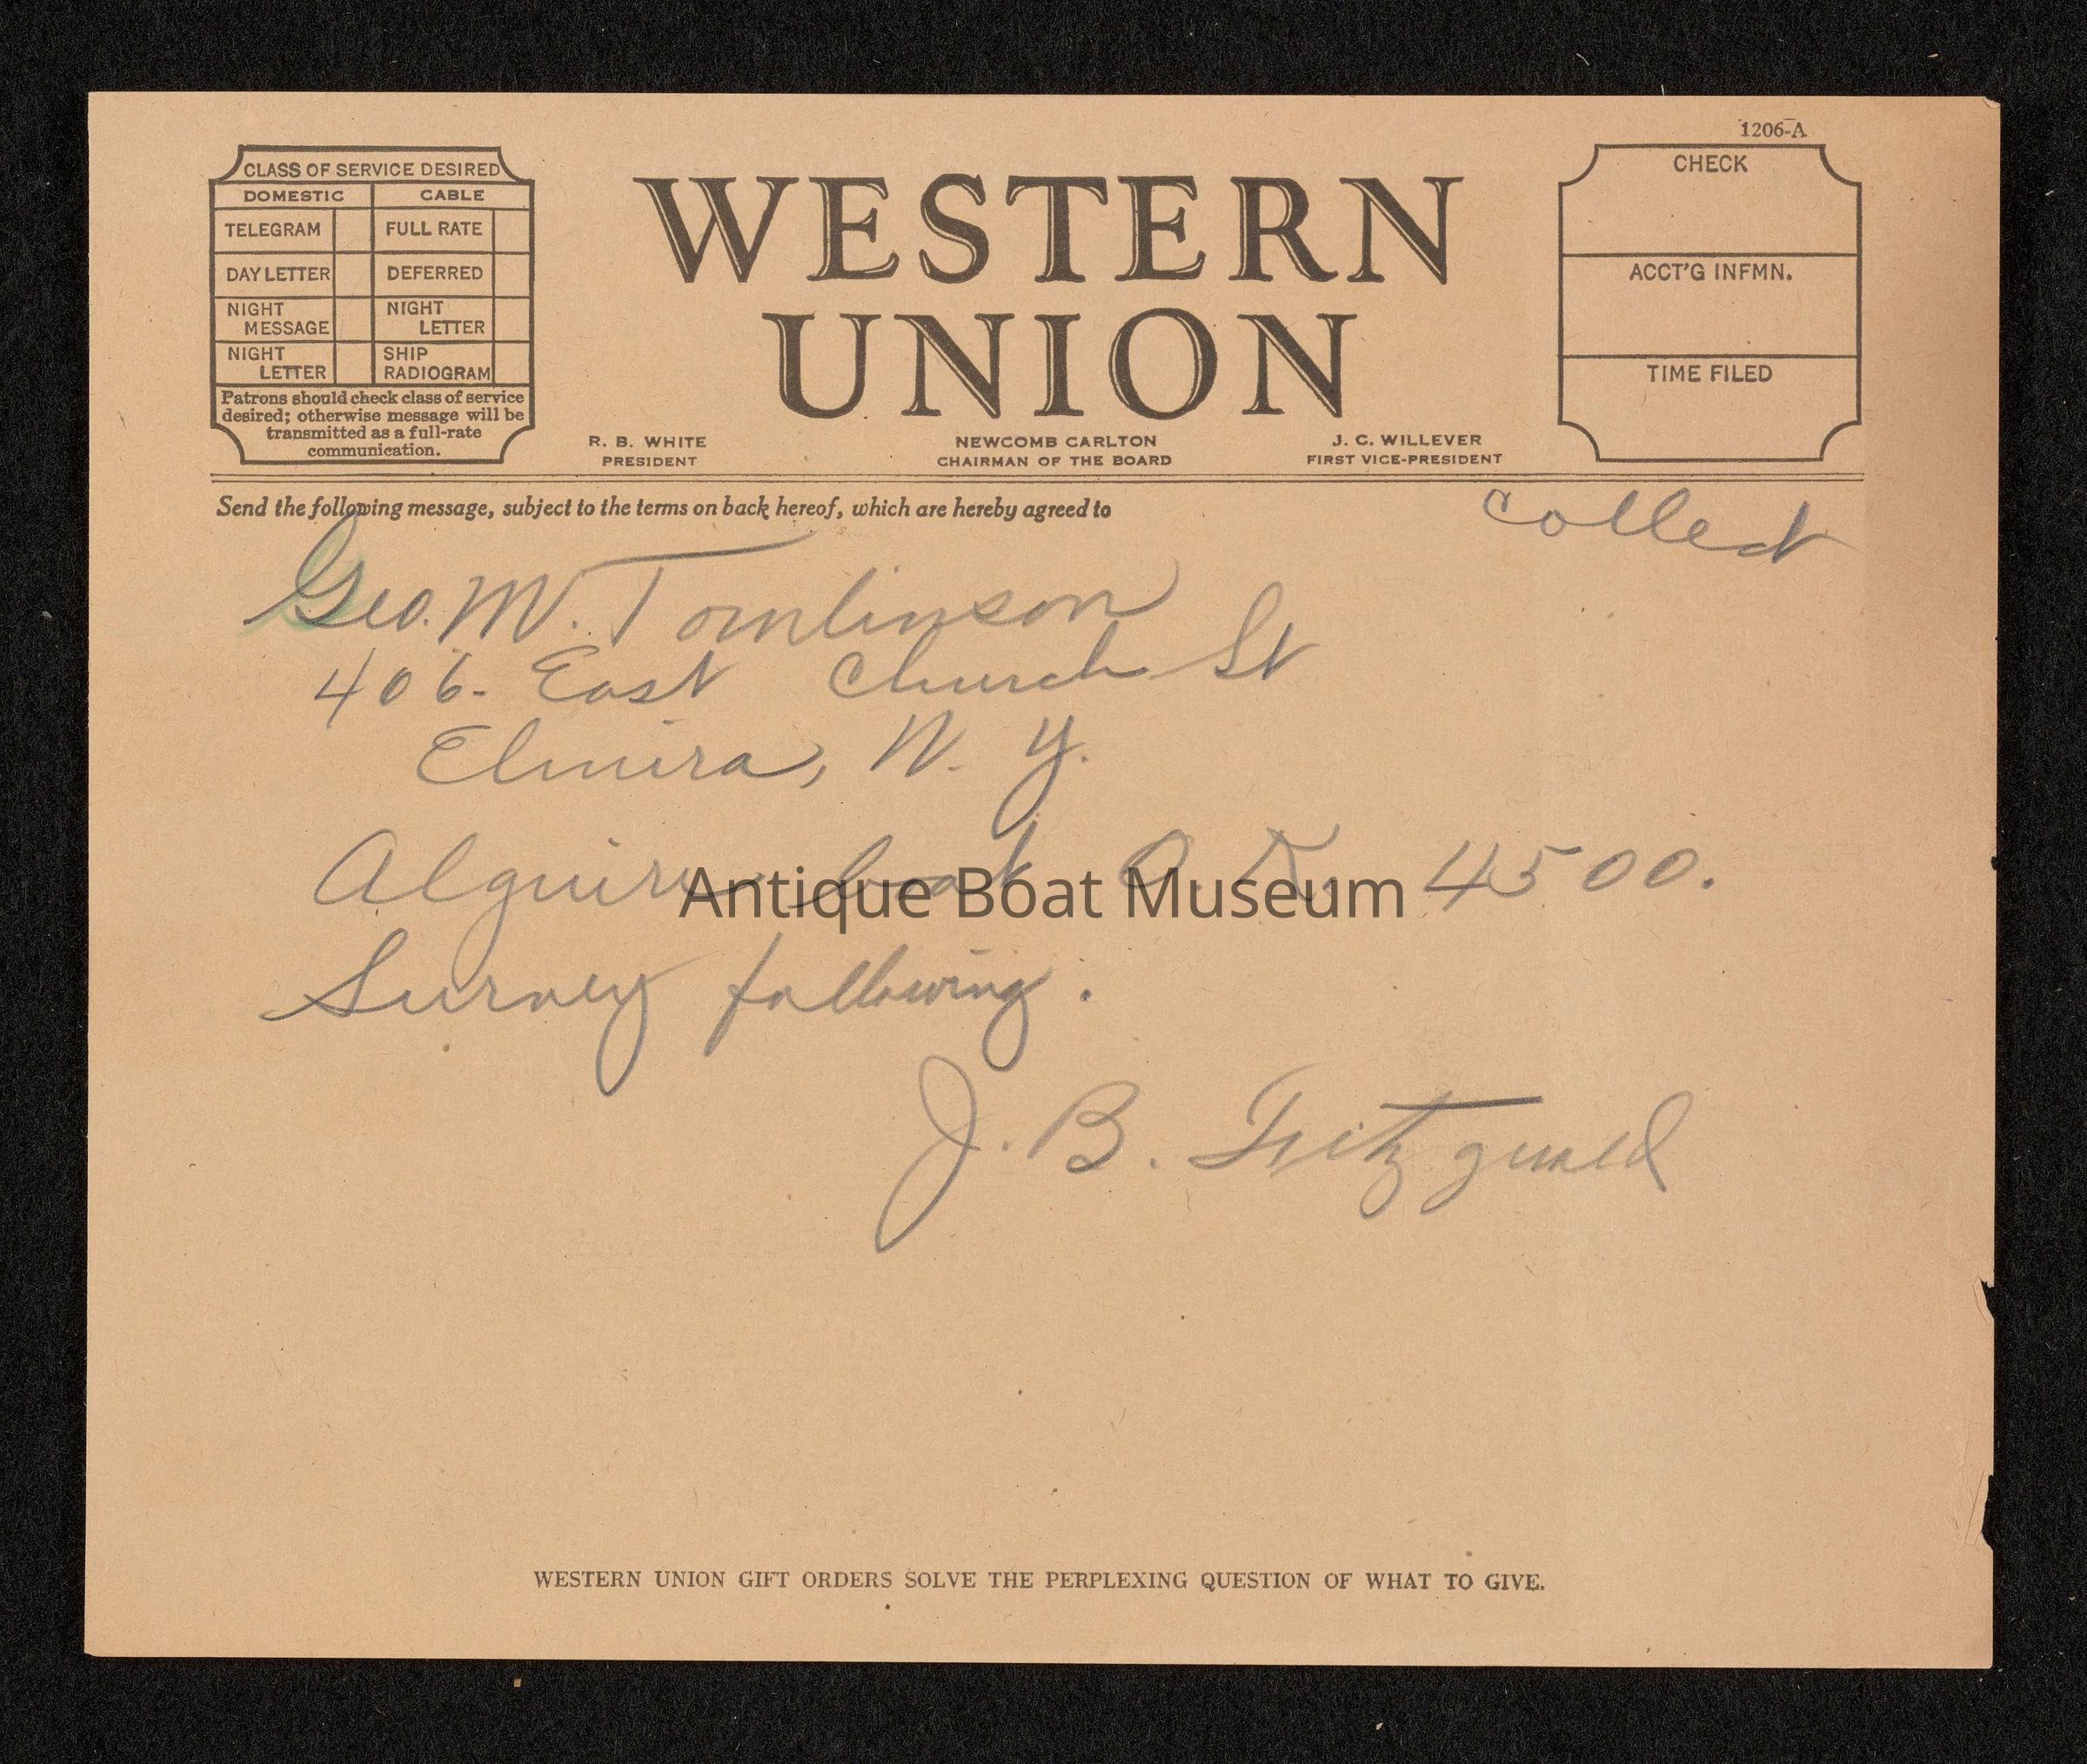 1206-A
CLASS OF SERVICE DESIRED
DOMESTIC CABLE
TELEGRAM FULL RATE
DAY LETTER DEFERRED
NIGHT MESSAGE NIGHT LETTER
NIGHT LETTER SHIP RADIOGRAM
Patrons should check class of service
desired; otherwise message will be
transmitted as a full-rate
communication.
WESTERN
UNION
R. B. WHITE
PRESIDENT
NEWCOMB CARLTON
CHAIRMAN OF THE BOARD
J. C. WILLEVER
FIRST VICE-PRESIDENT
CHECK
ACCT'G INFMN.
TIME FILED
Send the following message, subject to the terms on back hereof, which are hereby agreed to
Collect
Geo. M. Tomlinson
406- East Church St
Elmira, N. Y.
Alguire boat O.K. 4500.
Antique Boat Museum
Survey following.
J. B. Fitzgerald
WESTERN UNION GIFT ORDERS SOLVE THE PERPLEXING QUESTION OF WHAT TO GIVE.